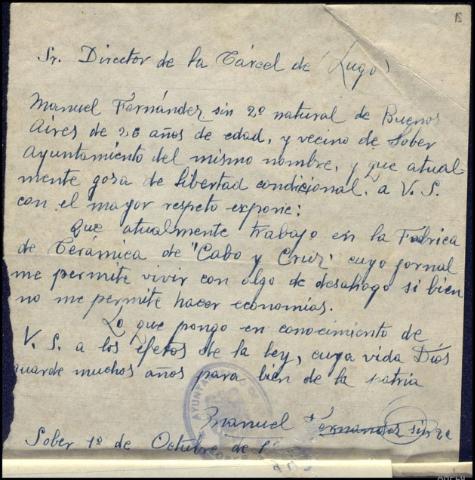 Sr. Director de la Cárcel de (Lugo)
Manuel Fernández sin 2º natural de Buenos
Aires de 26 años de edad, y vecino de Sober
Ayuntamiento del mismo nombre, y que atual
mente gosa de libertad condicional. a V. S.
con el mayor respeto expone:
Que atualmente trabajo en la Fabrica
de Cerámica de "Cabo y Cruz" cuyo jornal
me permite vivir con algo de desahogo si bien
no me permite hacer economías.
Lo que pongo en conocimiento de
V. S. a los efetos de la ley, cuya vida Dios
guarde muchos años para bien de la patria
Manuel Fernandez sin 2º
Sober 1º de Octubre de
AYUNTA